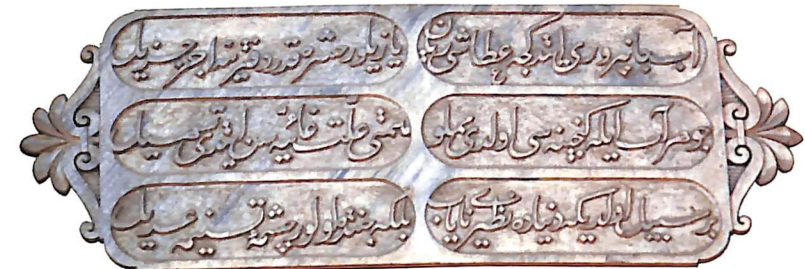 آب جانپروری ایتدکجه عطاشی ریان
یازیلور حشره قدر دفترینه اجر جزیل
جوهر آب ایله گنجینه سی اولدی مملو
همتی علت غائیه سن ایتدی تسهیل
بر سبیل اولدیکه دنیاده نظیری نایاب
بلکه جنتده اولور چشمۀ تسنیمه عدیل